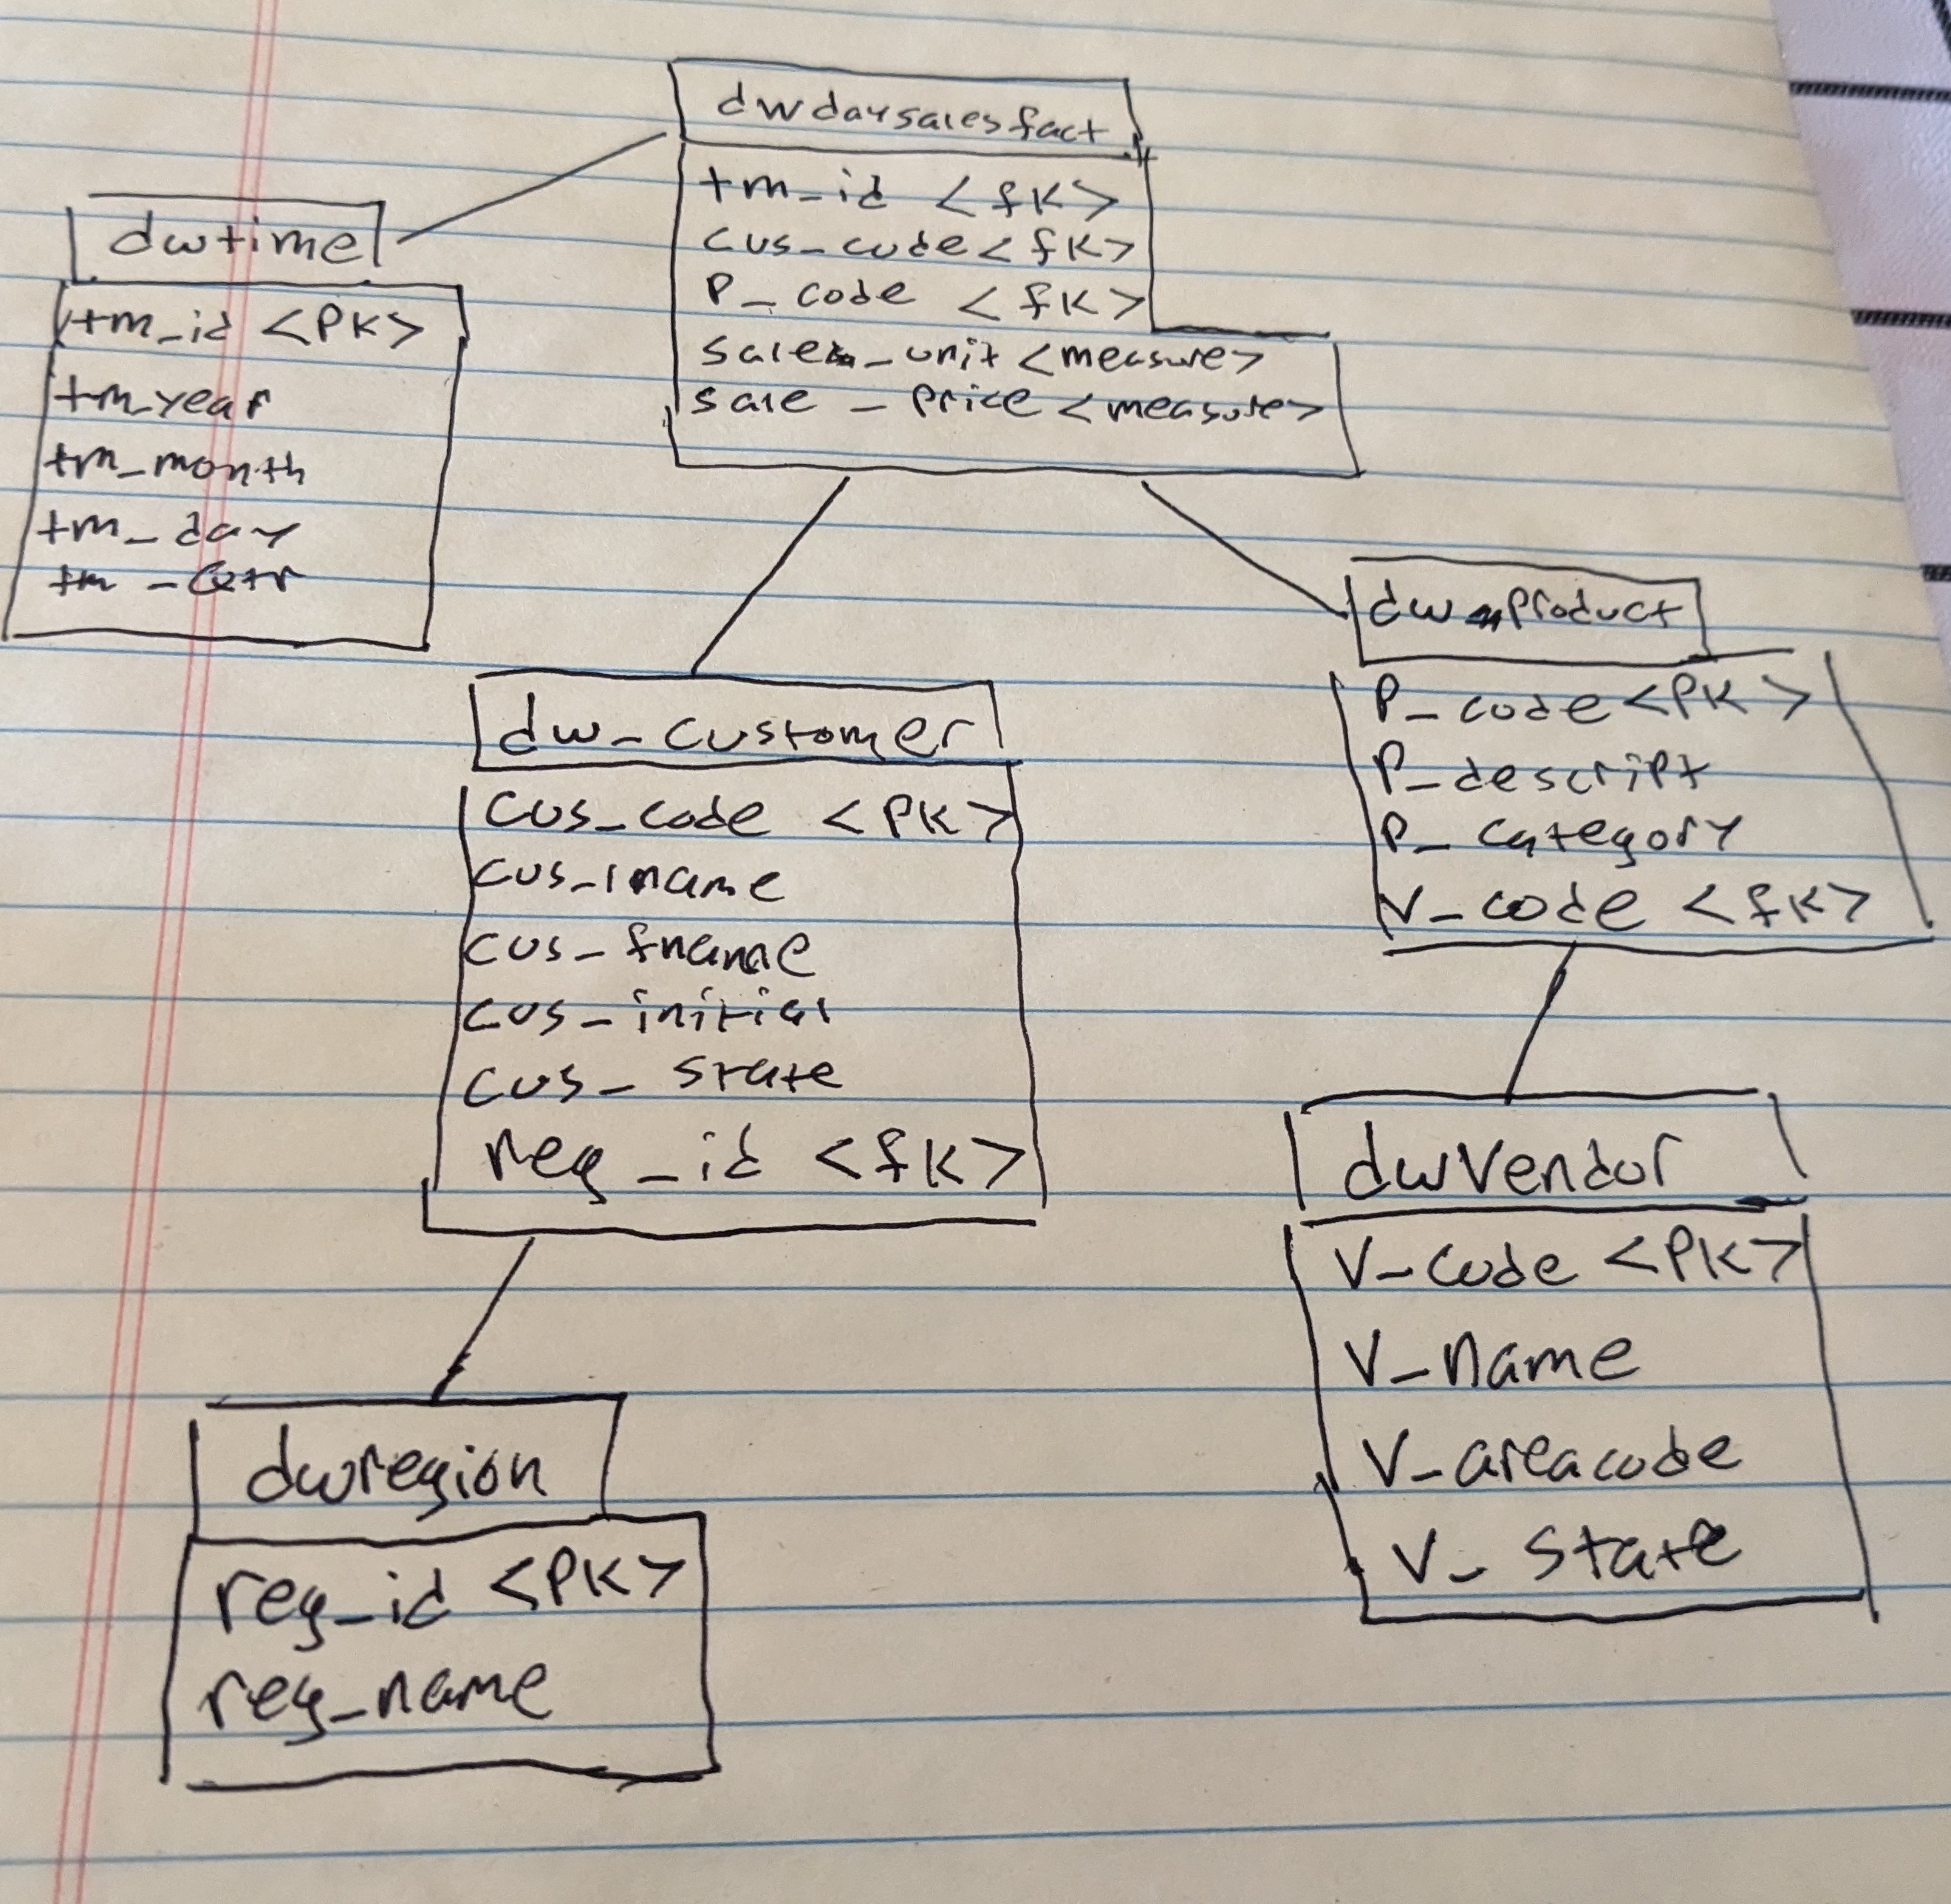 dwdaysalesfact
tm_id <fk>
cus_code <fk>
P_code <fk>
sale_unit <measure>
sale_price <measure>
dwtime
tm_id <PK>
tm_year
tm_month
tm_day
tm_Qtr
dw_customer
cus_code <PK>
cus_lname
cus_fname
cus_initial
cus_state
reg_id <fk>
dwproduct
P_code <PK>
P_descript
P_category
V_code <fk>
dwvendor
V_code <PK>
V_name
V_areacode
V_state
dwregion
reg_id <PK>
reg_name